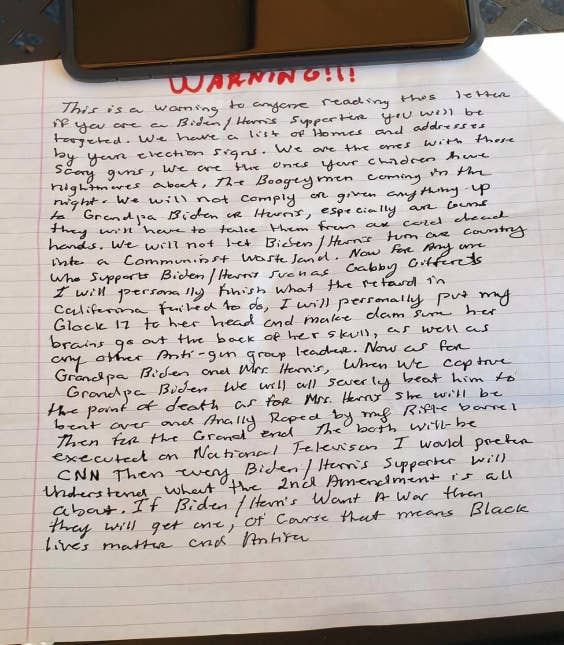 WARNING!!!
This is a warning to anyone reading this letter
if you are a Biden/Harris Supporter you will be
targeted. We have a list of Homes and addresses
by your election signs. We are the ones with those
Scary guns, We are the ones your children have
nightmares about, The Boogeymen coming in the
night. We will not comply or given anything up
to Grandpa Biden or Harris, especially our Guns
they will have to take them from our cold dead
hands. We will not let Biden/Harris turn our country
into a Communinst Waste land. Now for Any one
who supports Biden/Harris such as Gabby Gifferets
I will personally finish what the retard in
California failed to do, I will personally put my
Glock 17 to her head and make dam sure her
brains go out the back of her skull, as well as
any other Anti-gun group leader. Now as for
Grandpa Biden and Mrs Harris, When We Captive
Grandpa Biden We will all severly beat him to
the point of death as for Mrs. Harris she will be
bent over and Anally Raped by my Rifle barrel
Then for the Grand end The both will be
executed on National Televison I would prefer
CNN Then every Biden/Harris Supporter will
Understand what the 2nd Amendment is all
about. If Biden/Harris Want A War then
they will get one, Of Course that means Black
lives matter and Antifa